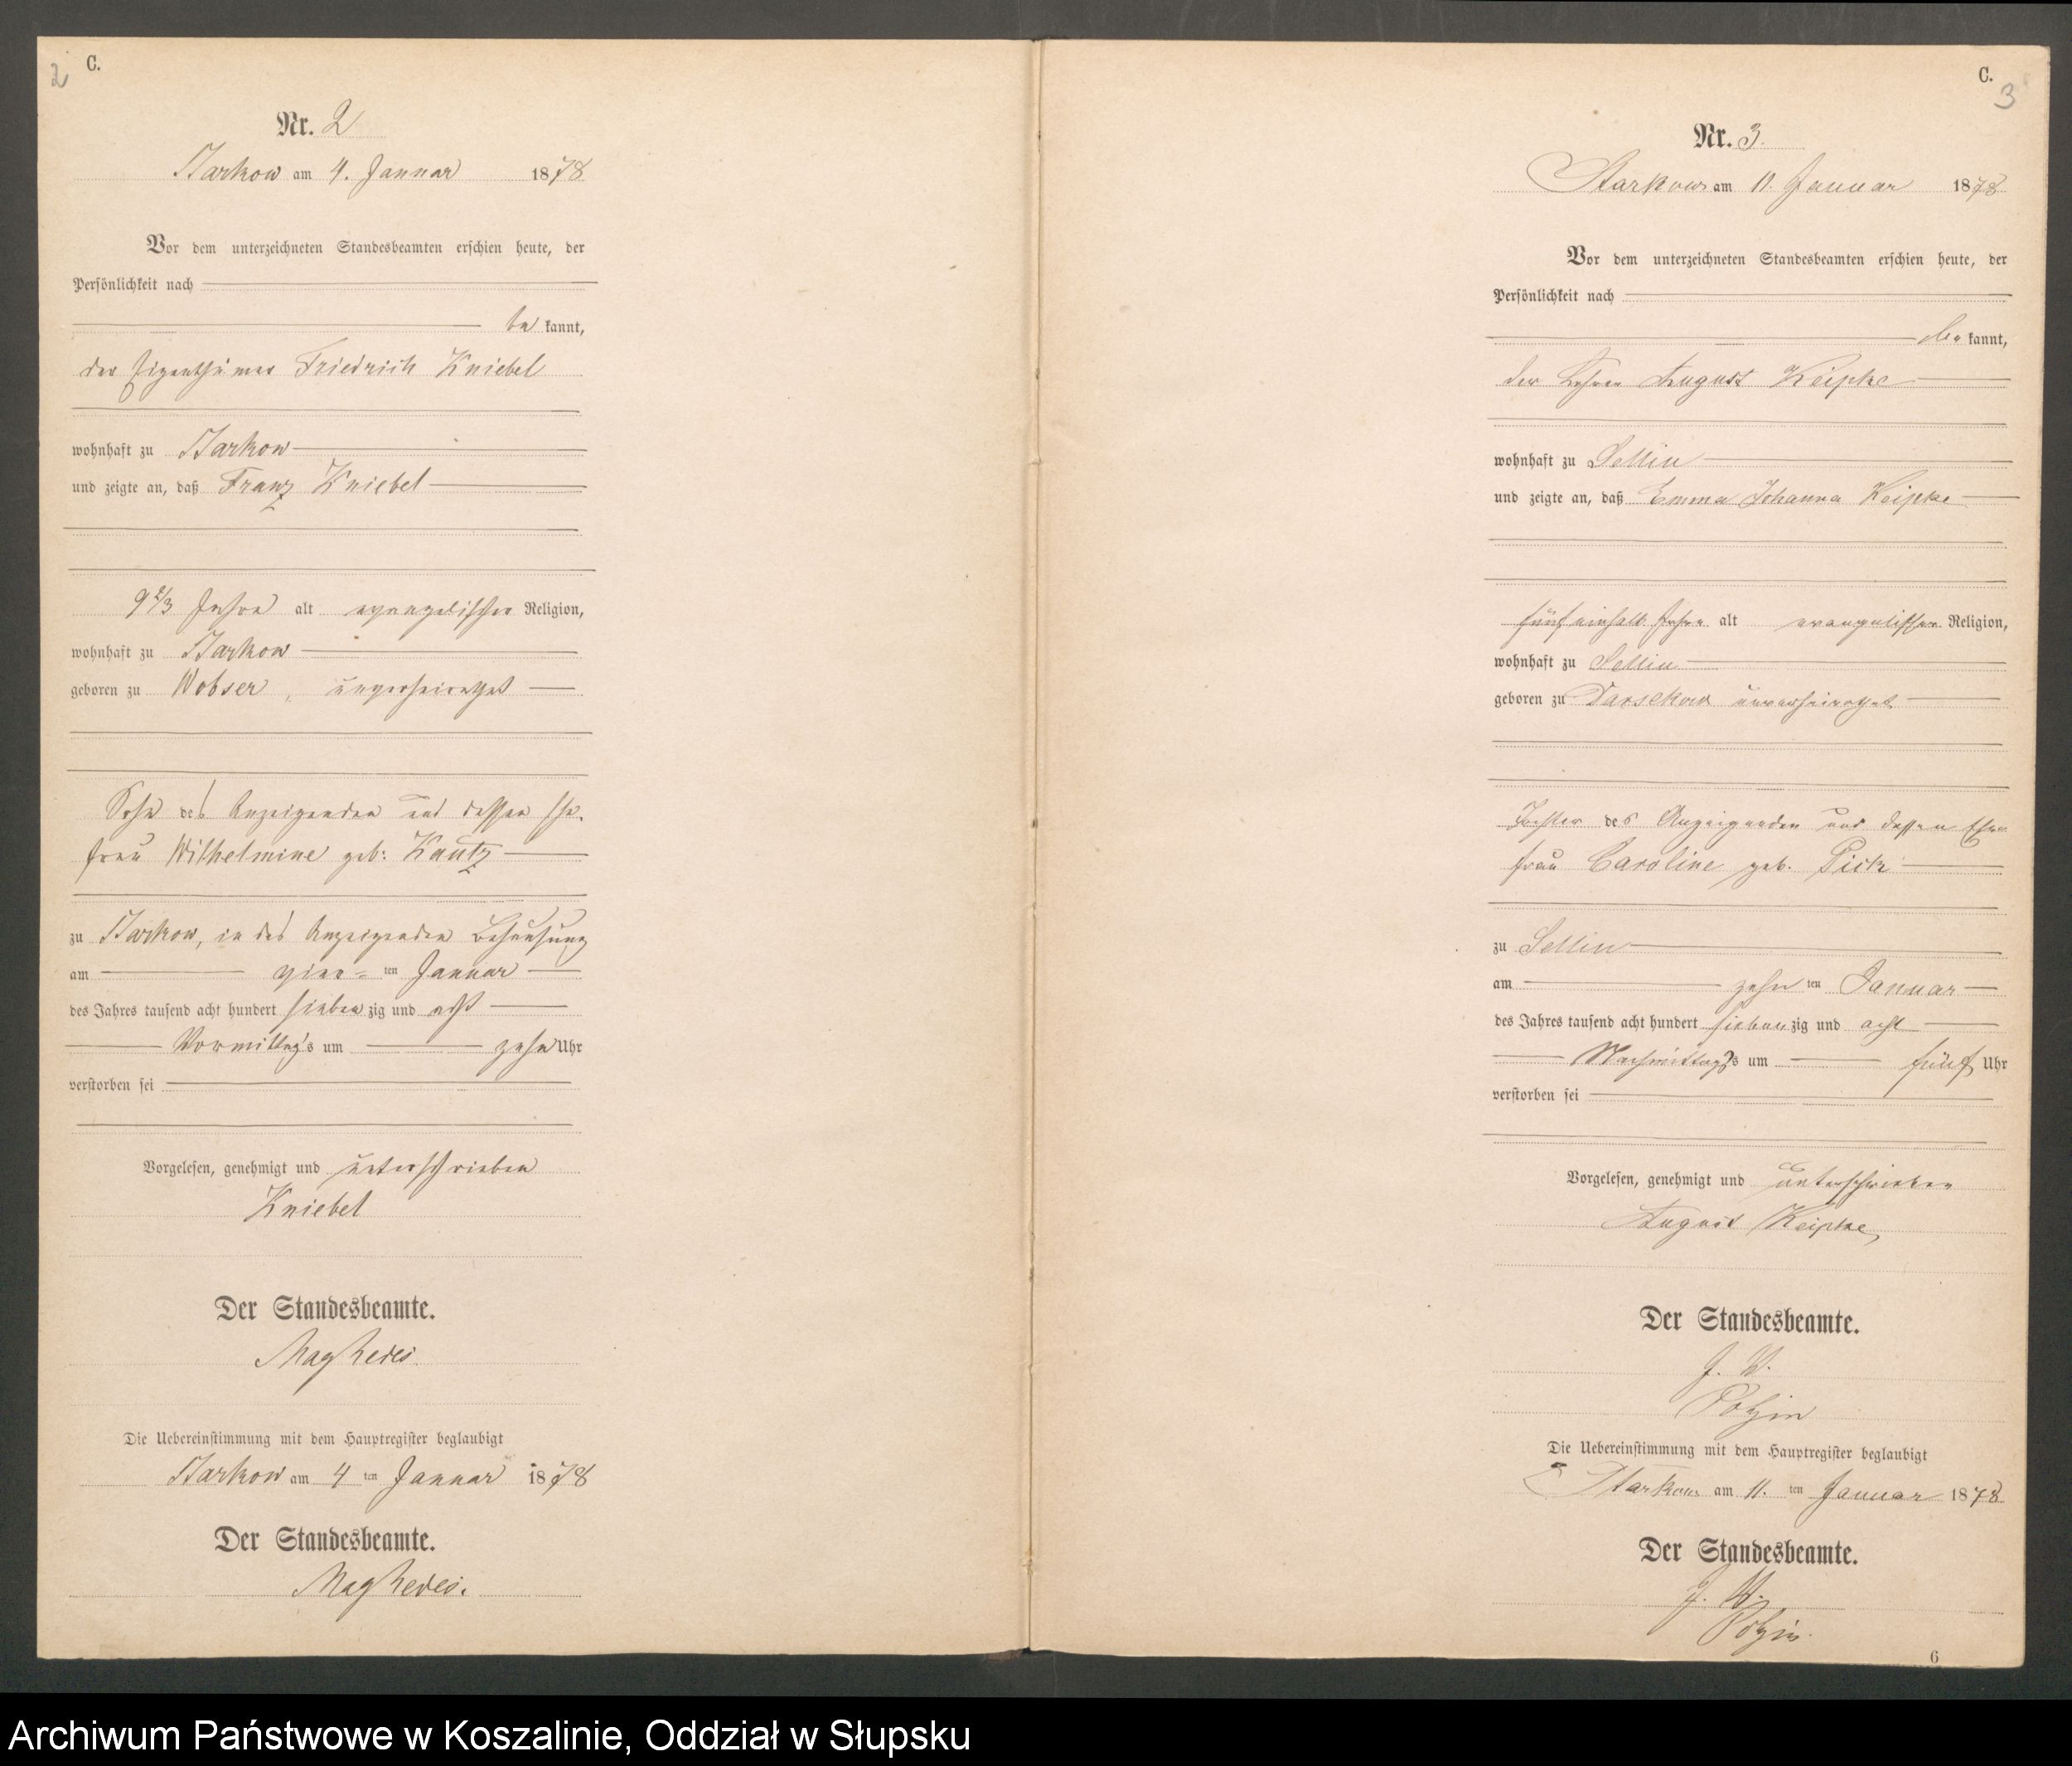 2
C.
Nr. 2
Starkow am 4. Januar 1878
Vor dem unterzeichneten Standesbeamten erschien heute, der
Persönlichkeit nach
be kannt,
der Eigenthümer Friedrich Kniebel
wohnhaft zu Starkow
und zeigte an, daß Franz Kniebel
9 2/3 Jahre alt evangelischer Religion,
wohnhaft zu Starkow
geboren zu Wobser, unverheirathet
Sohn des Anzeigenden und dessen Ehe-
frau Wilhelmine geb: Kautz
zu Starkow, in des Anzeigenden Behausung
am vier=ten Januar
des Jahres tausend acht hundert sieben zig und acht
Vormittags um zehn Uhr
verstorben sei
Vorgelesen, genehmigt und unterschrieben
Kniebel
Der Standesbeamte.
Die Uebereinstimmung mit dem Hauptregister beglaubigt
Starkow am 4 ten Januar 1878
Der Standesbeamte.
C.
3
Nr. 3.
Starkow am 11. Januar 1878
Vor dem unterzeichneten Standesbeamten erschien heute, der
Persönlichkeit nach
be kannt,
der Lehrer August Keipke
wohnhaft zu Sellin
und zeigte an, daß Emma Johanna Keipke
fünf einhalb Jahre alt evangelischer Religion,
wohnhaft zu Sellin
geboren zu Darsekow unverheirathet
Tochter des Anzeigenden und dessen Ehe-
frau Caroline geb. Pick
zu Sellin
am zehn ten Januar
des Jahres tausend acht hundert sieben zig und acht
Nachmittags um fünf Uhr
verstorben sei
Vorgelesen, genehmigt und unterschrieben
August Keipke
Der Standesbeamte.
J. V.
Potzin
Die Uebereinstimmung mit dem Hauptregister beglaubigt
Starkow am 11. ten Januar 1878
Der Standesbeamte.
J. V.
Potzin.
6
Archiwum Państwowe w Koszalinie, Oddział w Słupsku